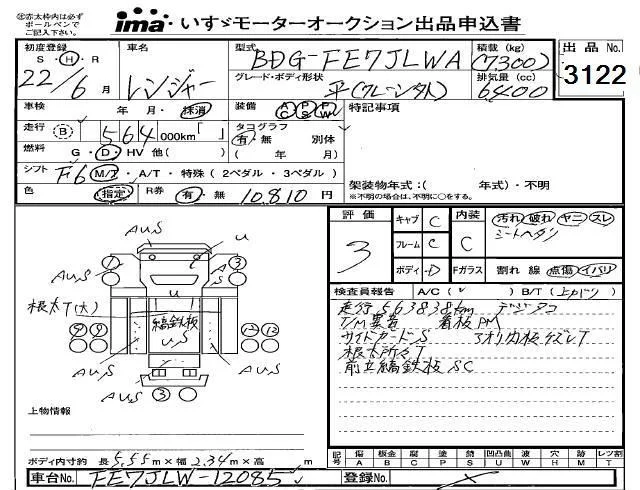 ㊟赤太枠内は必ず
ボールペンで
ご記入下さい。
ima いすゞモーターオークション出品申込書
初度登録 車名 型式 積載(kg) 出品No.
S・H・R BDG-FE7JLWA (7300)
22/6月 レンジャー グレード・ボディ形状 排気量(cc) 3122
平(クレーン外) 6400
車検 年 月・抹消 装備 AC PS PW 特記事項
走行 B 564 000km「 」 タコグラフ
有・無 別体
燃料 G・D・HV 他( ) ( 年 月)
シフト F6 M/T・A/T・特殊(2ペダル・3ペダル) 架装物年式:( 年式)・不明
※不明の場合は、不明に○をする。
色 指定 R券 有・無 10,810円
評価 キャブ C 内装 汚れ 破れ ヤニ スレ
3 フレーム C C シートヘタリ
ボディ D Fガラス 割れ 線 点傷 イバリ
検査員報告 A/C( ) B/T(上カブリ)
走行563838km デジタコ
T/M異音 看板PM
サイドガードS アオリ内板ケズレT
根太所々T
前立縞鉄板SC
AUS
U
AUS
AUS
3
根太T(大)
U
縞鉄板
US
AUS
AUS
AUS
3
上物情報
ボディ内寸約 長5.55m×幅2.34m×高 m
記号 傷A 板金B 腐C 塗P 錆S 凹凸曲U 波W 穴H 跡M レツ割T
車台No. FE7JLW-12085 登録No.